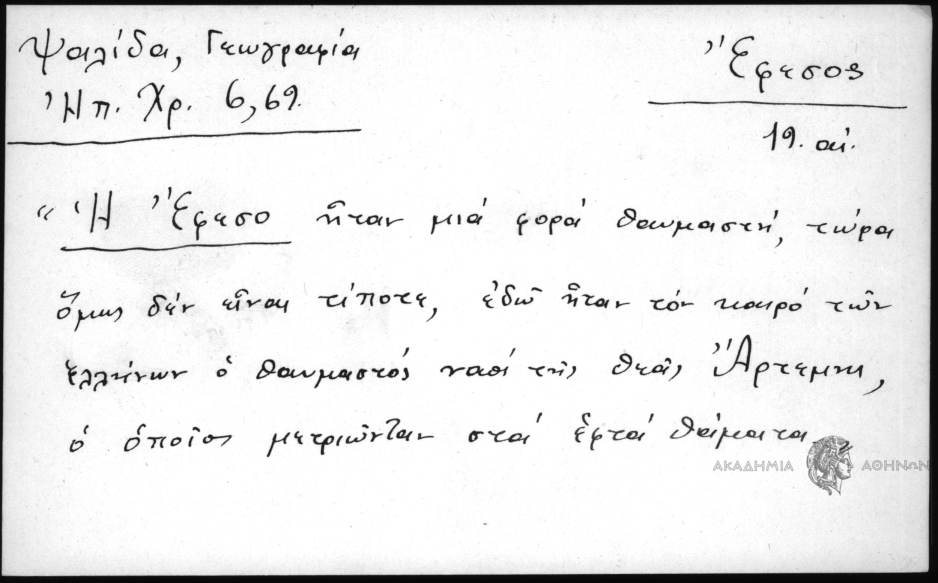 Ψαλίδα, Γεωγραφία
Ἠπ. Χρ. 6, 69.
Ἔφεσος
19. αἰ.
“Ἡ Ἔφεσο ἦταν μιά φορά θαυμαστή, τώρα
ὅμως δέν εἶναι τίποτε, ἐδῶ ἦταν τόν καιρό τῶν
ἑλλήνων ὁ θαυμαστός ναός τῆς θεᾶς Ἄρτεμης,
ὁ ὁποῖος μετριῶνταν στά ἑφτά θάματα
ΑΚΑΔΗΜΙΑ ΑΘΗΝΩΝ